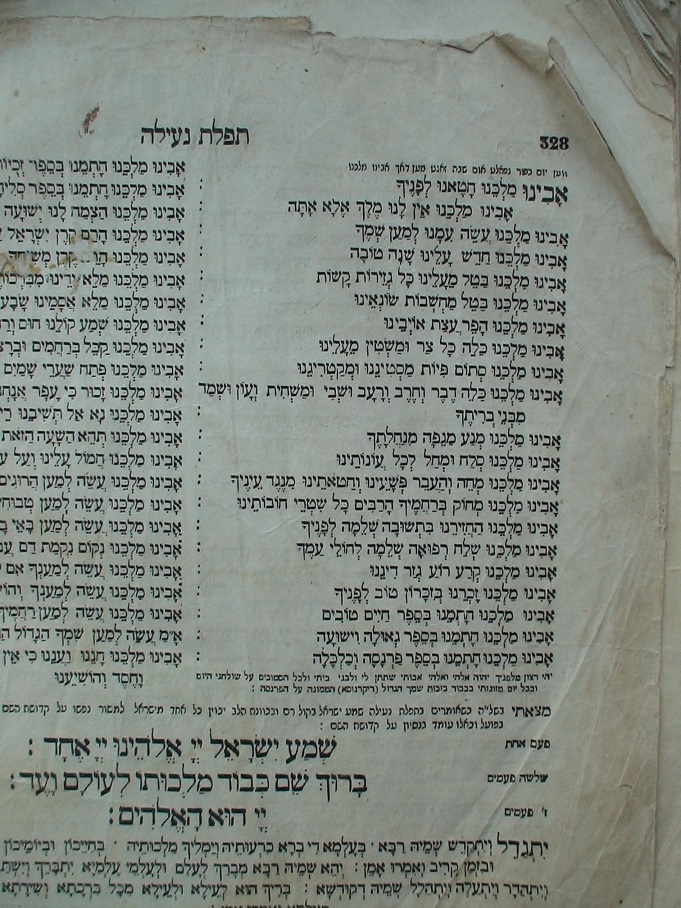 328
תפלת נעילה
ווען יום כפור נפאלט אום שבת זאגט מען דאך אבינו מלכנו
אָבִינוּ מַלְכֵּנוּ חָטָאנוּ לְפָנֶיךָ :
אָבִינוּ מַלְכֵּנוּ אֵין לָנוּ מֶלֶךְ אֶלָּא אָתָּה
אָבִינוּ מַלְכֵּנוּ עֲשֵׂה עִמָּנוּ לְמַעַן שְׁמֶךָ :
אָבִינוּ מַלְכֵּנוּ חַדֵּשׁ עָלֵינוּ שָׁנָה טוֹבָה :
אָבִינוּ מַלְכֵּנוּ בַּטֵּל מֵעָלֵינוּ כָּל גְּזֵירוֹת קָשׁוֹת :
אָבִינוּ מַלְכֵּנוּ בַּטֵּל מַחְשְׁבוֹת שׂוֹנְאֵינוּ :
אָבִינוּ מַלְכֵּנוּ הָפֵר עֲצַת אוֹיְבֵינוּ :
אָבִינוּ מַלְכֵּנוּ כַּלֵּה כָּל צַר וּמַשְׂטִין מֵעָלֵינוּ :
אָבִינוּ מַלְכֵּנוּ סְתוֹם פִּיּוֹת מַסְטִינֵנוּ וּמְקַטְרִיגֵנוּ :
אָבִינוּ מַלְכֵּנוּ כַּלֵּה דֶבֶר וְחֶרֶב וְרָעָב וּשְׁבִי וּמַשְׁחִית וְעָוֹן וּשְׁמַד
מִבְּנֵי בְרִיתֶךָ :
אָבִינוּ מַלְכֵּנוּ מְנַע מַגֵּפָה מִנַּחֲלָתֶךָ :
אָבִינוּ מַלְכֵּנוּ סְלַח וּמְחַל לְכָל עֲוֹנוֹתֵינוּ :
אָבִינוּ מַלְכֵּנוּ מְחֵה וְהַעֲבֵר פְּשָׁעֵינוּ וְחַטֹּאתֵינוּ מִנֶּגֶד עֵינֶיךָ :
אָבִינוּ מַלְכֵּנוּ מְחוֹק בְּרַחֲמֶיךָ הָרַבִּים כָּל שִׁטְרֵי חוֹבוֹתֵינוּ :
אָבִינוּ מַלְכֵּנוּ הַחֲזִירֵנוּ בִּתְשׁוּבָה שְׁלֵמָה לְפָנֶיךָ :
אָבִינוּ מַלְכֵּנוּ שְׁלַח רְפוּאָה שְׁלֵמָה לְחוֹלֵי עַמֶּךָ :
אָבִינוּ מַלְכֵּנוּ קְרַע רוֹעַ גְּזַר דִּינֵנוּ :
אָבִינוּ מַלְכֵּנוּ זָכְרֵנוּ בְּזִכָּרוֹן טוֹב לְפָנֶיךָ :
אָבִינוּ מַלְכֵּנוּ חָתְמֵנוּ בְּסֵפֶר חַיִּים טוֹבִים :
אָבִינוּ מַלְכֵּנוּ חָתְמֵנוּ בְּסֵפֶר גְּאוּלָּה וִישׁוּעָה :
אָבִינוּ מַלְכֵּנוּ חָתְמֵנוּ בְּסֵפֶר פַּרְנָסָה וְכַלְכָּלָה :
אָבִינוּ מַלְכֵּנוּ חָתְמֵנוּ בְּסֵפֶר זְכֻיּוֹת
אָבִינוּ מַלְכֵּנוּ חָתְמֵנוּ בְּסֵפֶר
אָבִינוּ מַלְכֵּנוּ הַצְמַח לָנוּ יְשׁוּעָה
אָבִינוּ מַלְכֵּנוּ הָרֵם קֶרֶן יִשְׂרָאֵל
אָבִינוּ מַלְכֵּנוּ קֶרֶן
אָבִינוּ מַלְכֵּנוּ מַלֵּא יָדֵינוּ
אָבִינוּ מַלְכֵּנוּ מַלֵּא אֲסָמֵינוּ שָׂבָע
אָבִינוּ מַלְכֵּנוּ שְׁמַע קוֹלֵנוּ חוּס
אָבִינוּ מַלְכֵּנוּ קַבֵּל בְּרַחֲמִים
אָבִינוּ מַלְכֵּנוּ פְּתַח שַׁעֲרֵי שָׁמַיִם
אָבִינוּ מַלְכֵּנוּ זָכוּר כִּי עָפָר
אָבִינוּ מַלְכֵּנוּ נָא אַל תְּשִׁיבֵנוּ
אָבִינוּ מַלְכֵּנוּ תְּהֵא הַשָּׁעָה הַזֹּאת
אָבִינוּ מַלְכֵּנוּ חֲמוֹל עָלֵינוּ וְעַל
אָבִינוּ מַלְכֵּנוּ עֲשֵׂה לְמַעַן הֲרוּגִים
אָבִינוּ מַלְכֵּנוּ עֲשֵׂה לְמַעַן
אָבִינוּ מַלְכֵּנוּ עֲשֵׂה לְמַעַן בָּאֵי
אָבִינוּ מַלְכֵּנוּ נְקוֹם נִקְמַת דַּם
אָבִינוּ מַלְכֵּנוּ עֲשֵׂה לְמַעַנְךָ אִם
אָבִינוּ מַלְכֵּנוּ עֲשֵׂה לְמַעַנְךָ
אָבִינוּ מַלְכֵּנוּ עֲשֵׂה לְמַעַן רַחֲמֶיךָ
א״מ עֲשֵׂה לְמַעַן שִׁמְךָ הַגָּדוֹל
אָבִינוּ מַלְכֵּנוּ חָנֵּנוּ וַעֲנֵנוּ כִּי אֵין
וָחֶסֶד וְהוֹשִׁיעֵנוּ
יהי רצון מלפניך יהוה אלהי ואלהי אבותי שתתן לי ולבני ביתי ולכל הסמוכים על שולחני היום
ובכל יום מזונותי בכבוד בזכות שמך הגדול הממונה על הפרנסה :
מצאתי בשל״ה כשאומרים בתפלת נעילה שמע ישראל בקול רם ובכוונת הלב יכוין כל אחד מישראל למסור נפשו על קדושת השם
בפועל וכאלו עומד בנסיון על קדושת השם :
פעם אחת שְׁמַע יִשְׂרָאֵל יְיָ אֱלֹהֵינוּ יְיָ אֶחָד :
שלשה פעמים בָּרוּךְ שֵׁם כְּבוֹד מַלְכוּתוֹ לְעוֹלָם וָעֶד :
ז׳ פעמים יְיָ הוּא הָאֱלֹהִים :
יִתְגַּדַּל וְיִתְקַדַּשׁ שְׁמֵיהּ רַבָּא . בְּעָלְמָא דִי בְרָא כִרְעוּתֵיהּ וְיַמְלִיךְ מַלְכוּתֵיהּ . בְּחַיֵּיכוֹן וּבְיוֹמֵיכוֹן
וּבִזְמַן קָרִיב וְאִמְרוּ אָמֵן : יְהֵא שְׁמֵיהּ רַבָּא מְבָרַךְ לְעָלַם וּלְעָלְמֵי עָלְמַיָּא יִתְבָּרַךְ
וְיִתְהַדָּר וְיִתְעַלֶּה וְיִתְהַלָּל שְׁמֵיהּ דְּקוּדְשָׁא : בְּרִיךְ הוּא לְעֵילָּא וּלְעֵילָּא מִכָּל בִּרְכָתָא וְשִׁירָתָא